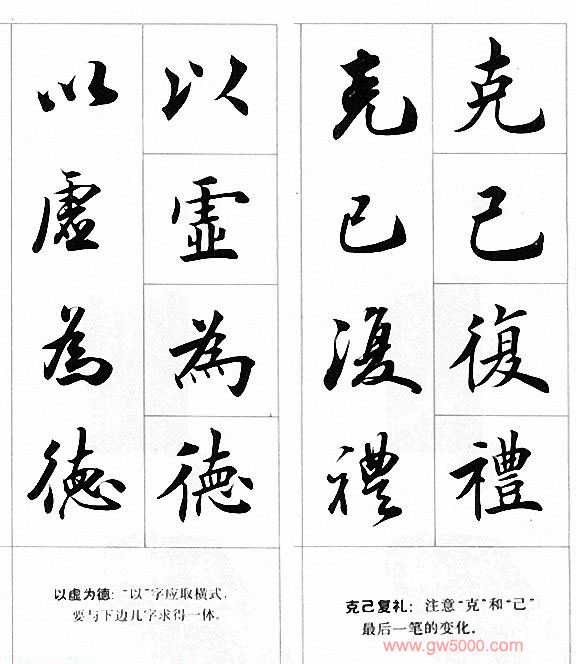 克己復禮
克己復禮
克己复礼：注意“克”和“己”
最后一笔的变化．
以虛為德
以虛為德
以虚为德：“以”字应取横式．
要与下边几字求得一体。
www.gw5000.com